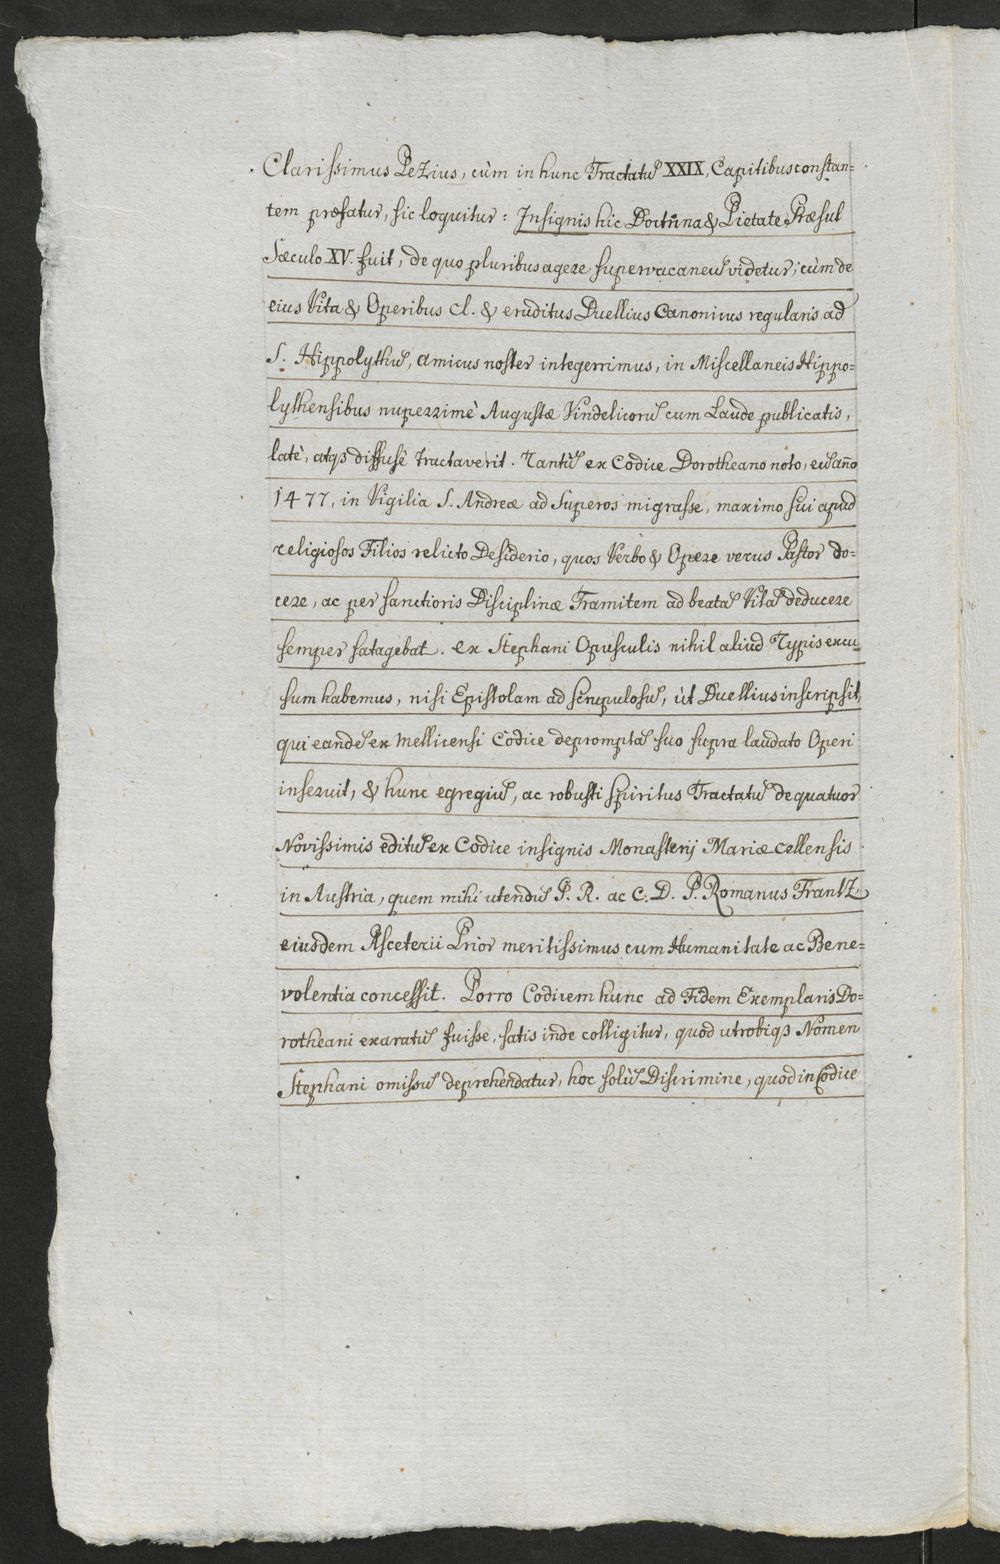 Clarissimus Pezius, cùm in hunc Tractatū XXIX, Capitibus constan=
tem præfatur, sic loquitur: Insignis hic Doctrina & Pietate Præsul
Sæculo XV. fuit, de quo pluribus agere supervacaneū videtur; cùm de
eius Vita & Operibus Cl. & eruditus Duellius Canonicus regularis ad
S. Hippolythū, amicus noster integerrimus, in Miscellaneis Hippo=
lythensibus nuperrimè Augustæ Vindelicorū cum Laude publicatis,
latè, atqꝫ diffusè tractaverit. Tantū ex Codice Dorotheano noto, eū año
1477, in Vigilia S. Andreæ ad Superos migrasse, maximo sui apud
religiosos Filios relicto Desiderio, quos Verbo & Opere verus Pastor do=
cere, ac per sanctioris Disciplinæ Tramitem ad beatā Vitā deducere
semper satagebat. ex Stephani Opusculis nihil aliud Typis excu=
sum habemus, nisi Epistolam ad scrupulosū, ut Duellius inscripsit,
qui eandē ex Mellicensi Codice depromptā suo supra laudato Operi
inseruit, & hunc egregiū, ac robusti Spiritus Tractatū de quatuor
Novissimis editū ex Codice insignis Monasterij Mariæ cellensis
in Austria, quem mihi utendū P. R. ac C. D. P. Romanus Frantz,
eiusdem Asceterii Prior meritissimus cum Humanitate ac Bene=
volentia concessit. Porro Codicem hunc ad Fidem Exemplaris Do=
rotheani exaratū fuisse, satis inde colligitur, quod utrobiqꝫ Nomen
Stephani omissū deprehendatur, hoc solū Discrimine, quod in Codice